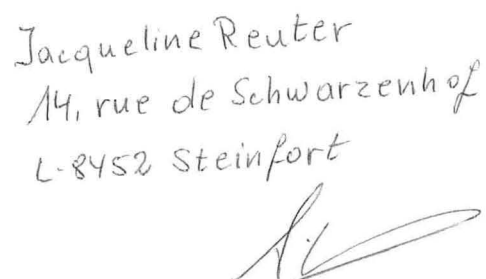 Jacqueline Reuter
14, rue de Schwarzenhof
L-8452 Steinfort